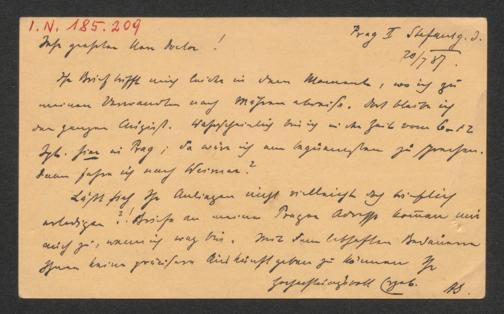 I.N. 185.209
Prag II Stefansg. 3.
20/7 87.
Sehr geehrter Herr Doctor!
Ihr Brief trifft mich leider in dem Momente, wo ich zu
meinen Verwandten nach Mähren abreise. Dort bleibe ich
den ganzen August. Wahrscheinlich bin ich in der Zeit vom 6–12
Spt. hier in Prag; da wäre ich am bequemsten zu sprechen.
Dann fahre ich nach Weimar?
Läßt sich Ihr Anliegen nicht vielleicht doch brieflich
erledigen?! Briefe an meine Prager Adresse kommen mir
auch zu, wenn ich weg bin. Mit dem lebhaften Bedauern
Ihnen keine präzisere Auskunft geben zu können Ihr
hochachtungsvoll Ergeb.
AS.